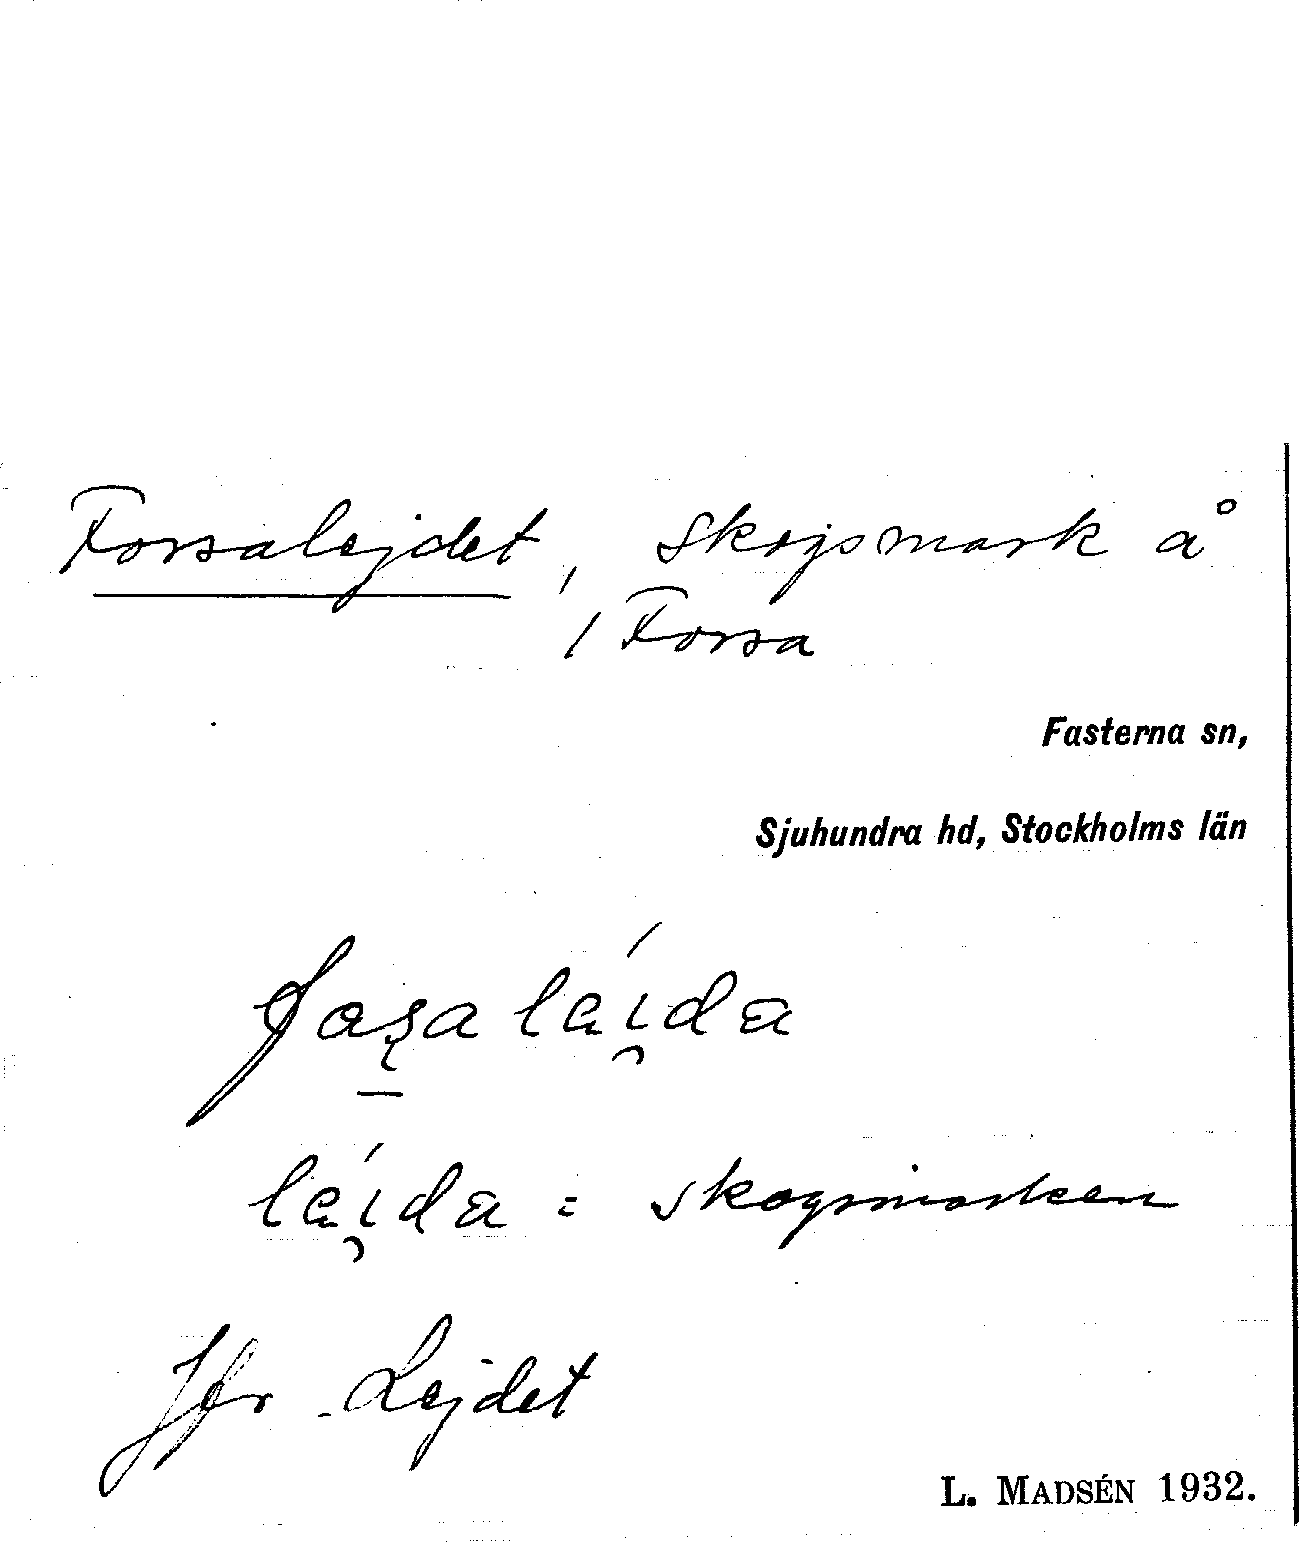 Forsalejdet, skogsmark å
/ Forsa
Fasterna sn,
Sjuhundra hd, Stockholms län
skogsmarken
Jfr Lejdet
L. MADSÉN 1932.